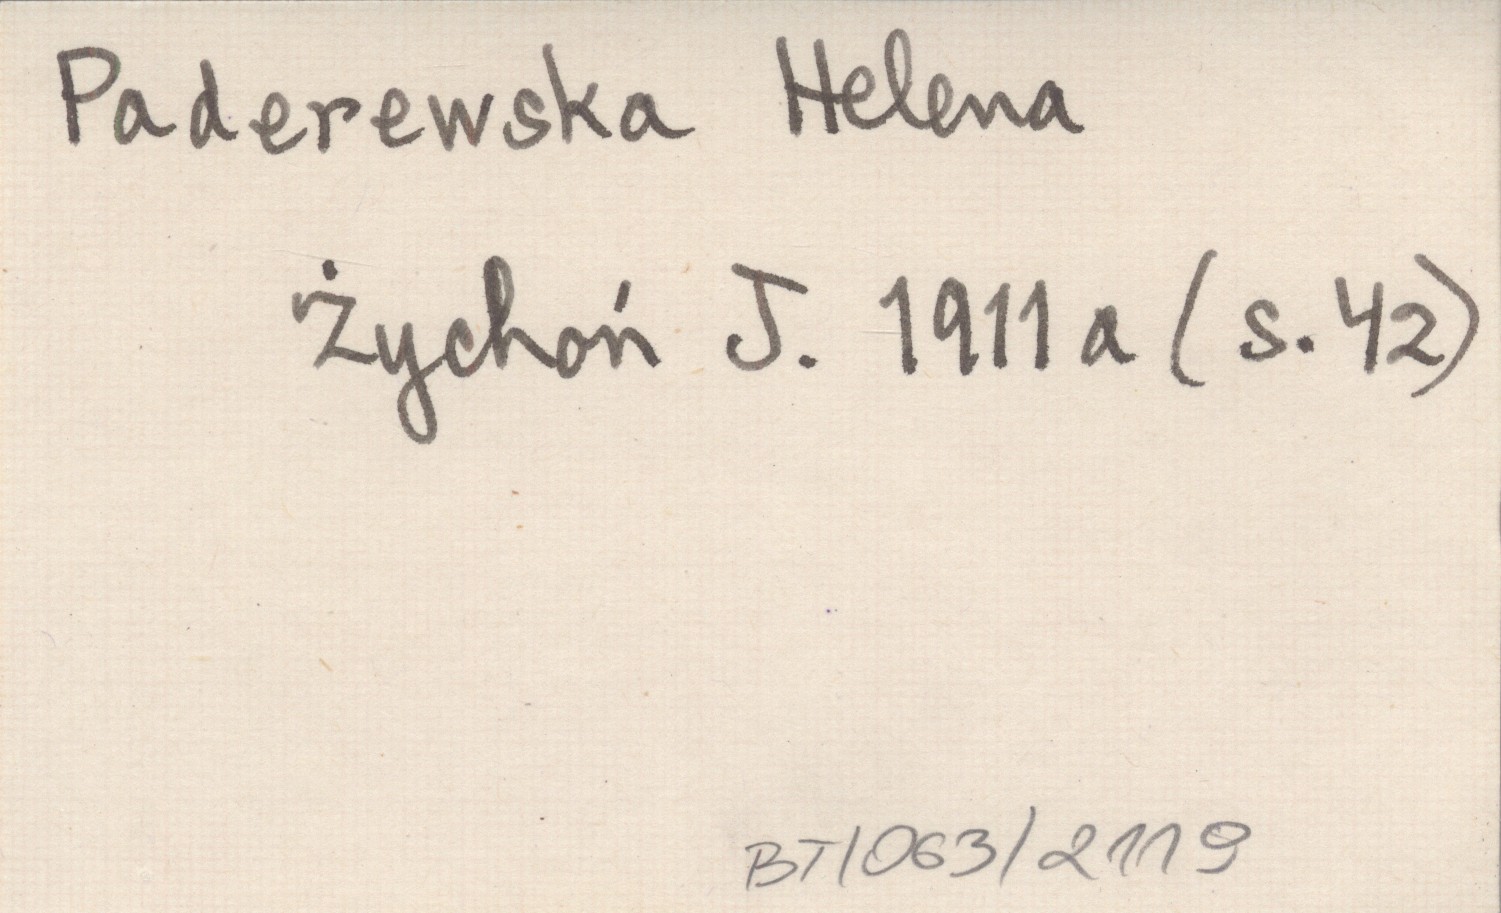 Paderewska Helena
Żychoń J. 1911a (s. 42)
BT/063/2119